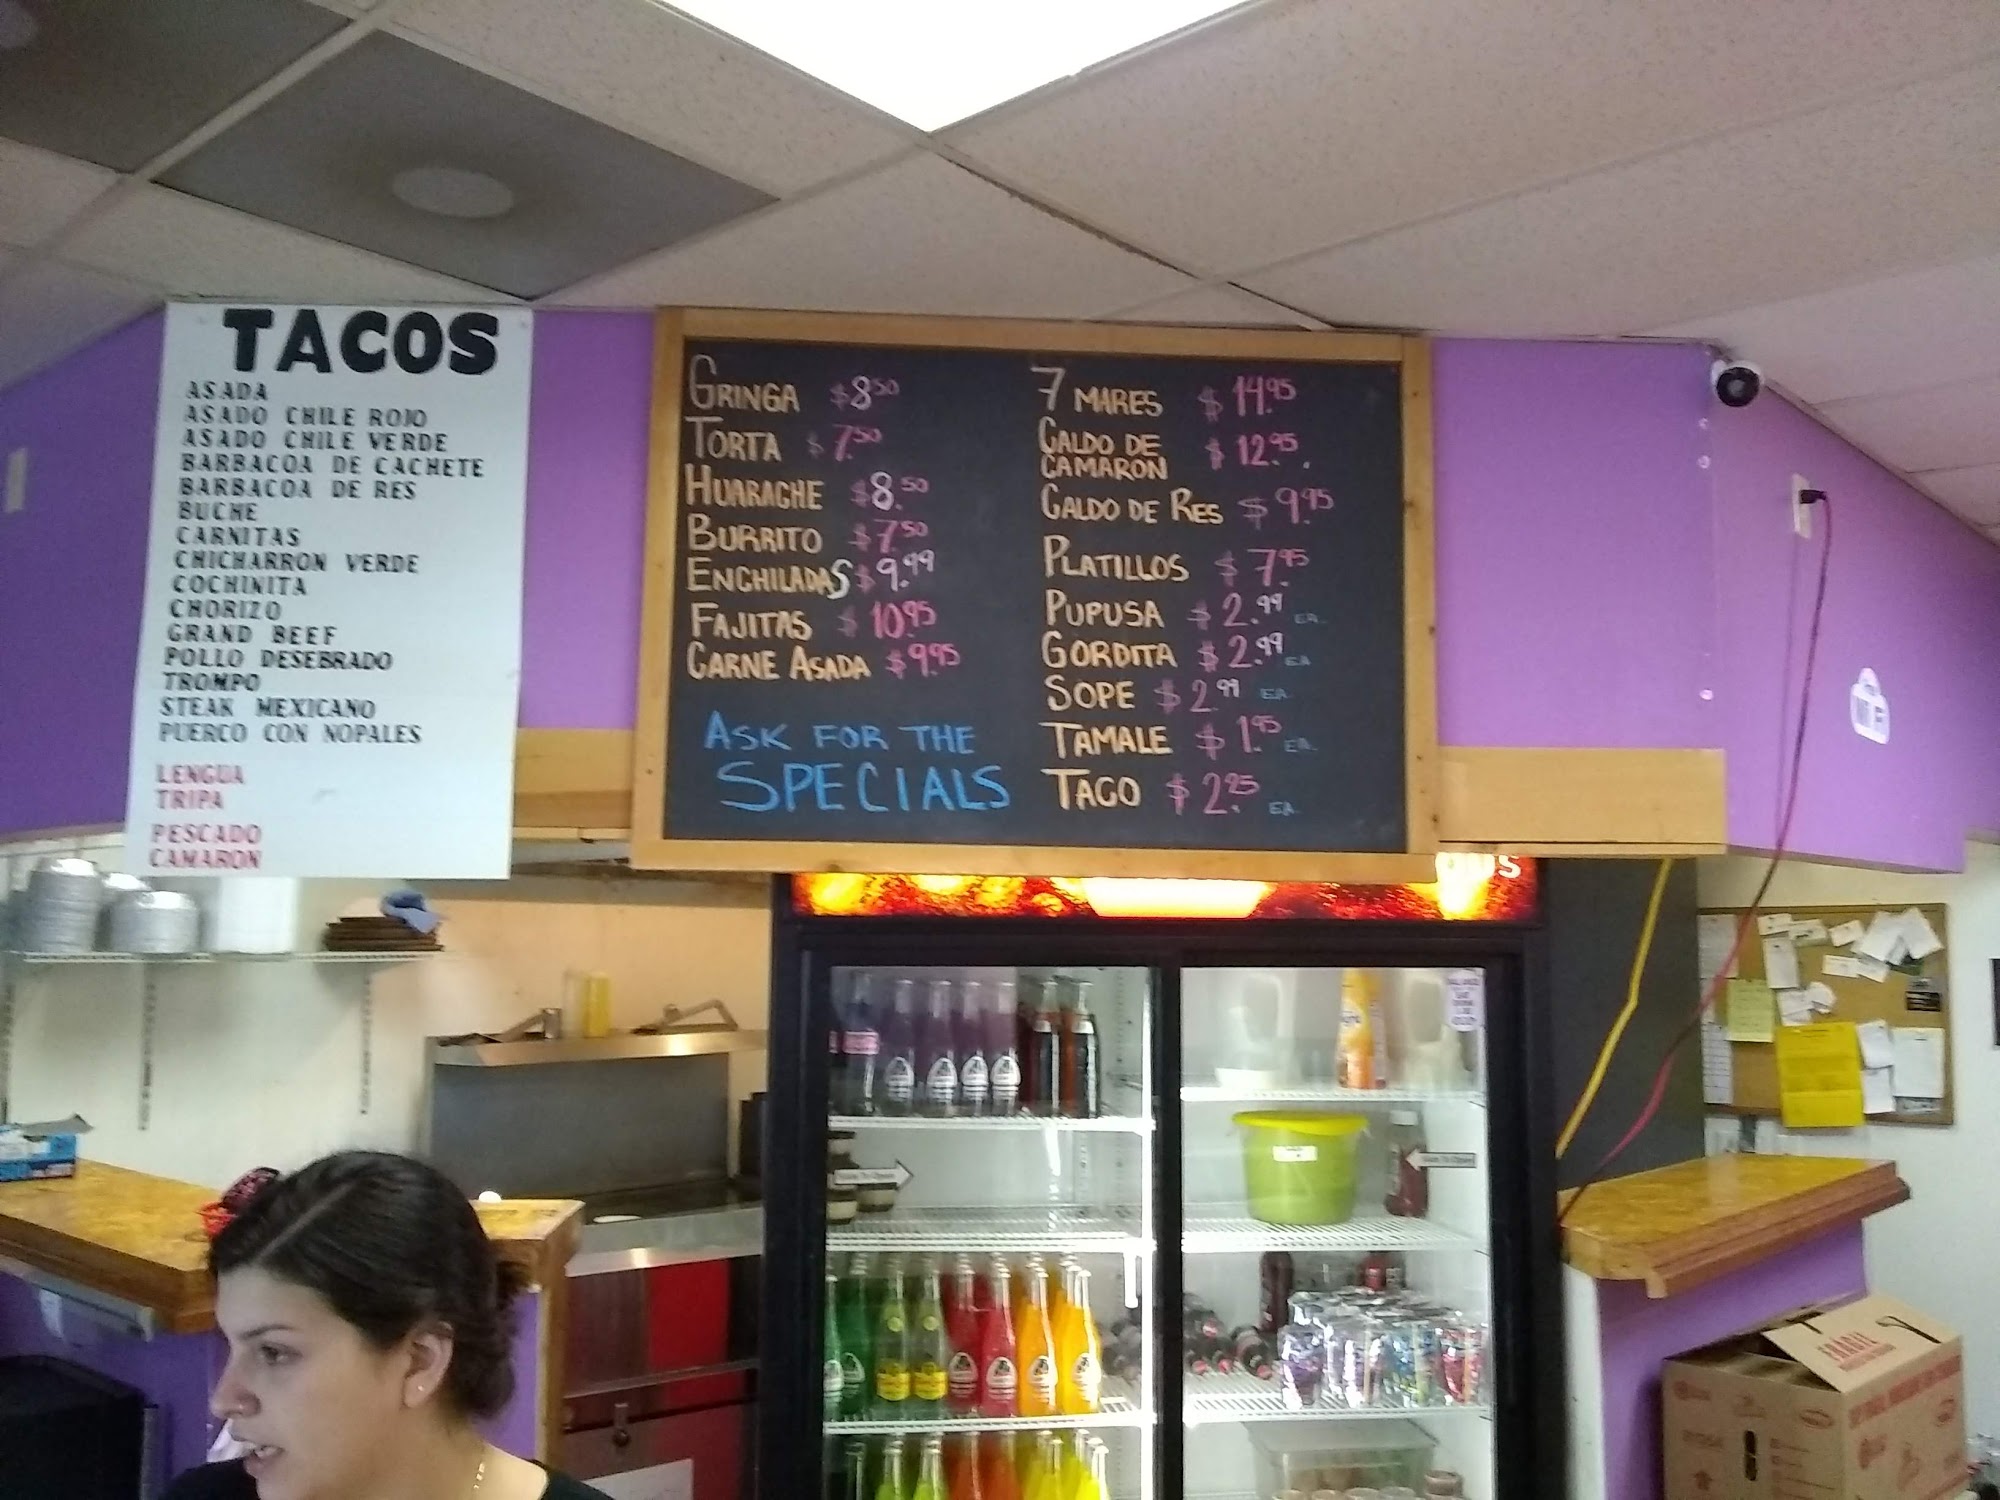 TACOS
ASADA
ASADO CHILE ROJO
ASADO CHILE VERDE
BARBACOA DE CACHETE
BARBACOA DE RES
BUCHE
CARNITAS
CHICHARRON VERDE
COCHINITA
CHORIZO
GRAND BEEF
POLLO DESEBRADO
TROMPO
STEAK MEXICANO
PUERCO CON NOPALES
LENGUA
TRIPA
PESCADO
CAMARON
GRINGA $8.50
TORTA $7.50
HUARACHE $8.50
BURRITO $7.50
ENCHILADAS $9.99
FAJITAS $10.95
CARNE ASADA $9.95
ASK FOR THE
SPECIALS
7 MARES $14.95
CALDO DE
CAMARON $12.95
CALDO DE RES $9.95
PLATILLOS $7.95
PUPUSA $2.99 EA.
GORDITA $2.99 EA
SOPE $2.99 EA.
TAMALE $1.95 EA.
TACO $2.25 EA.
FRAGIL